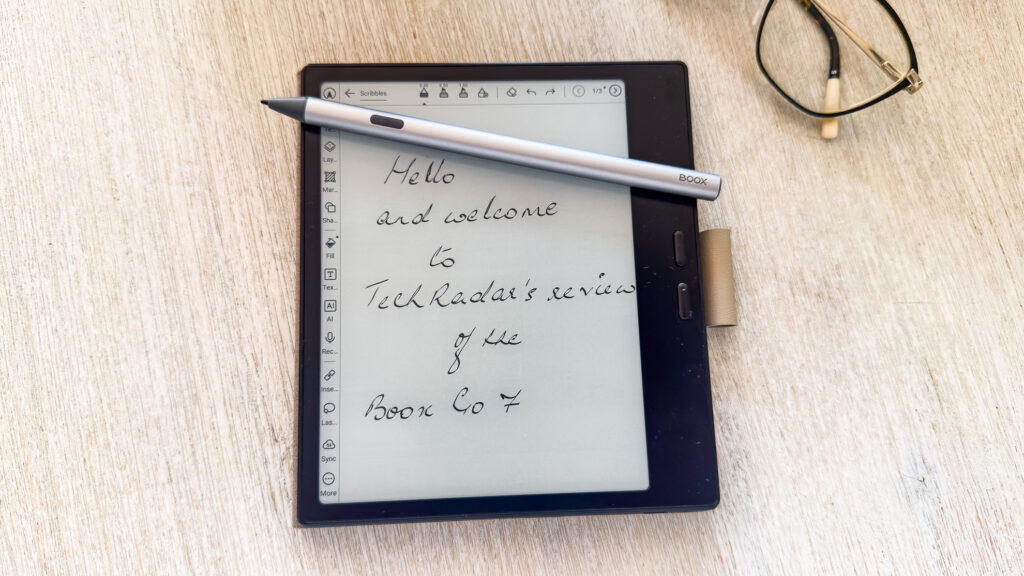 Scribbles
1/3
BOOX
Lay...
Mar...
Sha...
Fill
Tex...
AI
AI
Rec...
Inse...
Las...
Sync
More
Hello
and welcome
to
TechRadar's review
of the
Boox Go 7